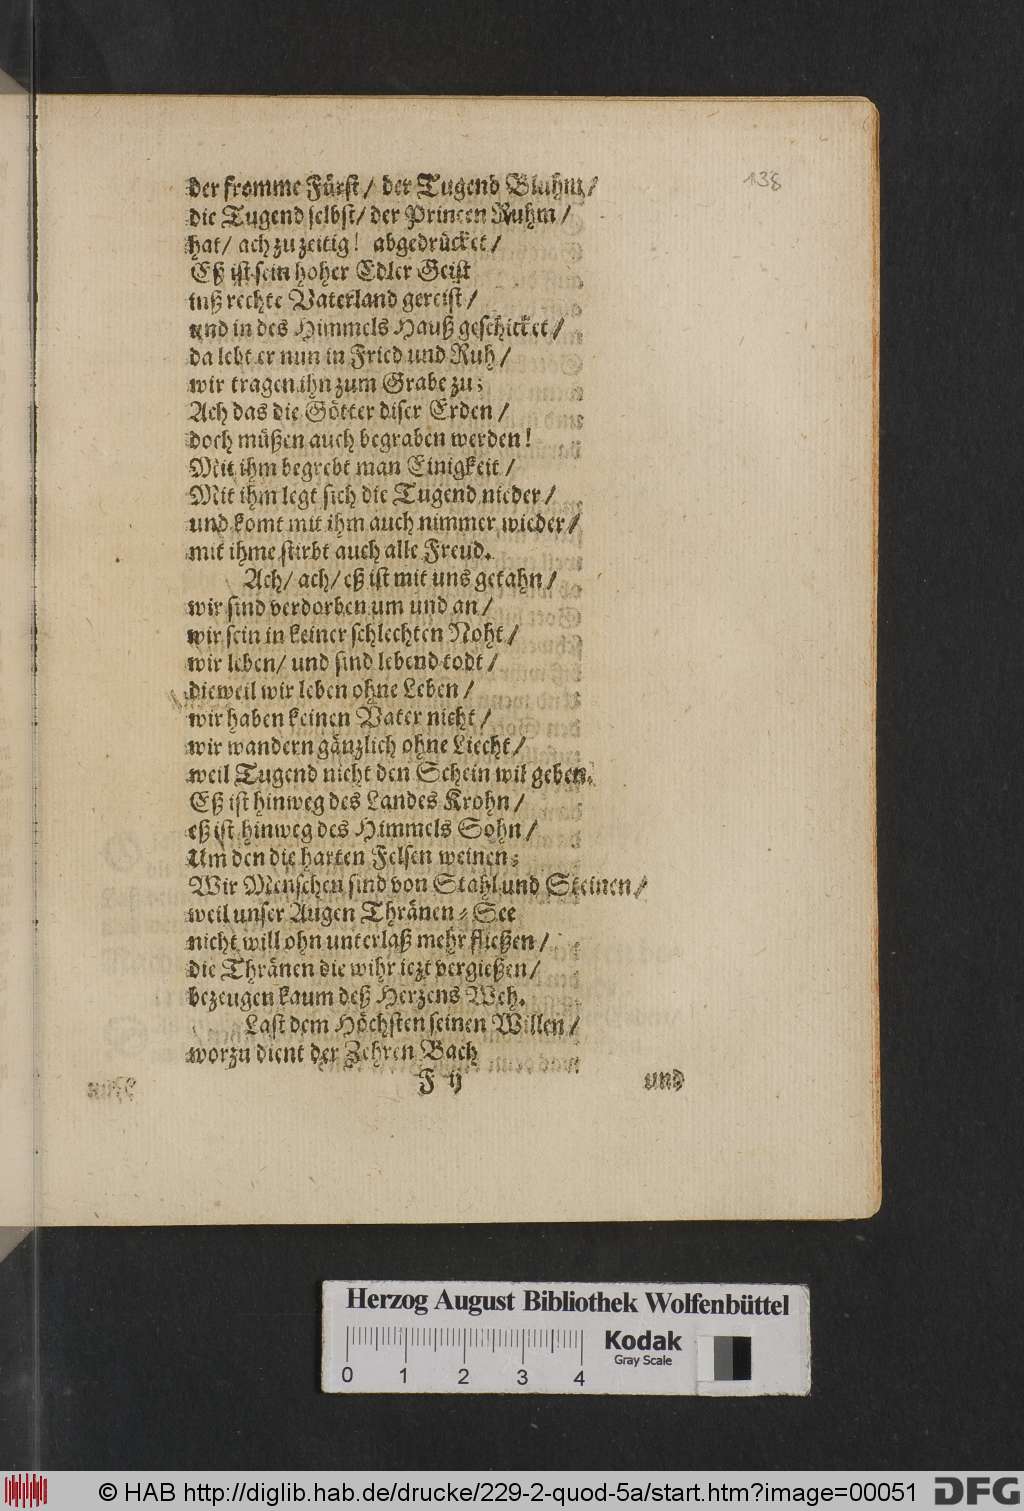 138
der fromme Fürst / der Tugend Bluhm /
die Tugend selbst / der Princen Ruhm /
hat / ach zu zeitig! abgedrücket /
Eß ist sein hoher Edler Geist
inß rechte Vaterland gereist /
und in des Himmels Hauß geschicket /
da lebt er nun in Fried und Ruh /
wir tragen ihn zum Grabe zu;
Ach das die Götter diser Erden /
doch müßen auch begraben werden!
Mit ihm begrebt man Einigkeit /
Mit ihm legt sich die Tugend nieder /
und komt mit ihm auch nimmer wieder /
mit ihme stirbt auch alle Freud.
Ach / ach / eß ist mit uns getahn /
wir sind verdorben um und an /
wir sein in keiner schlechten Noht /
wir leben / und sind lebend todt /
dieweil wir leben ohne Leben /
wir haben keinen Vater nicht /
wir wandern gänzlich ohne Liecht /
weil Tugend nicht den Schein wil geben.
Eß ist hinweg des Landes Krohn /
eß ist hinweg des Himmels Sohn /
Um den die harten Felsen weinen;
Wir Menschen sind von Stahl und Steinen /
weil unser Augen Thränen-See
nicht will ohn unterlaß mehr fließen /
die Thränen die wihr iezt vergießen /
bezeugen kaum deß Herzens Weh.
Last dem Höchsten seinen Willen /
worzu dient der Zehren Bach
F ij und
Herzog August Bibliothek Wolfenbüttel
Kodak
Gray Scale
0 1 2 3 4
© HAB http://diglib.hab.de/drucke/229-2-quod-5a/start.htm?image=00051 DFG